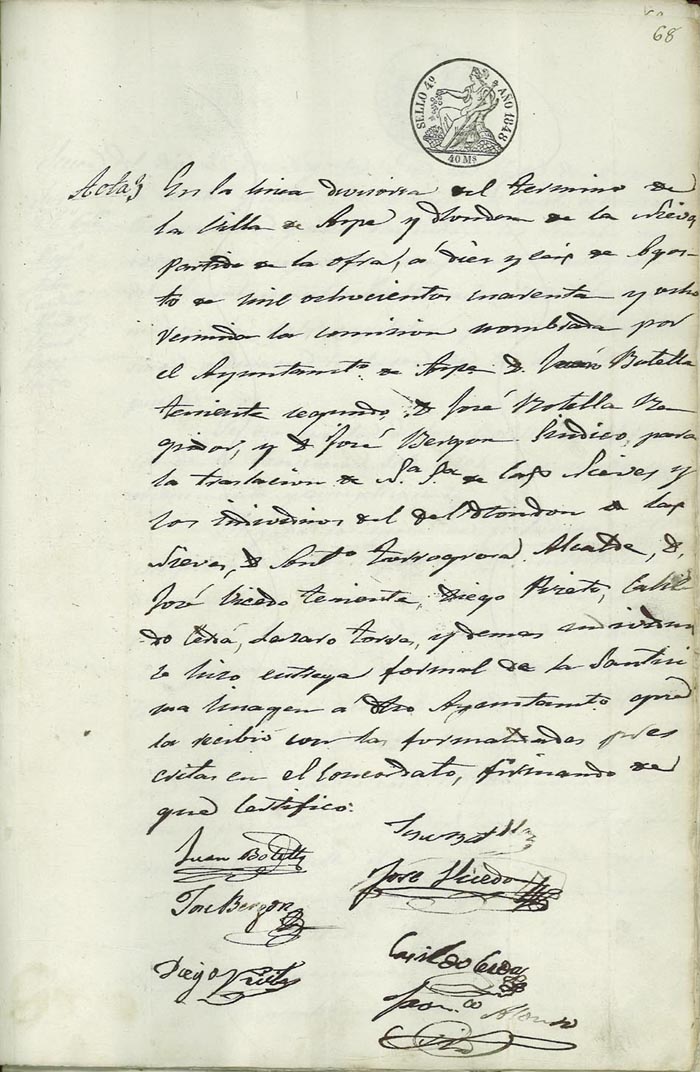 68
SELLO 4º AÑO 1848
40 Ms
Acta} En la linea divisoria del termino de
la Villa de Aspe y Hondon de la Nieves
Partido de la ofra, á diez y seis de Agos-
to de mil ochocientos cuarenta y ocho
venida la comision nombrada por
el Ayuntamto de Aspe D. Juan Botella
teniente segundo, D José Botella Re
gidor, y D José Bergon Sindico, para
la traslacion de N.a S.a de las Nieves y
los individuos del del Hondon de las
Nieves, D Anto Torregrosa Alcalde, D.
José Vicedo teniente, Diego Prieto, Casil
do Cerdá, Lazaro Torres, y demas individuos
se hizo entrega formal de la Santisi
ma Imagen a dho Ayuntamto que
la recibió con las formalidades pres
critas en el Concordato, firmando de
que Certifico.
Juan Botella
Jose Botella
Jose Vicedo
Jose Bergon
Diego Prieto
Casildo Cerda
Franco Alonso